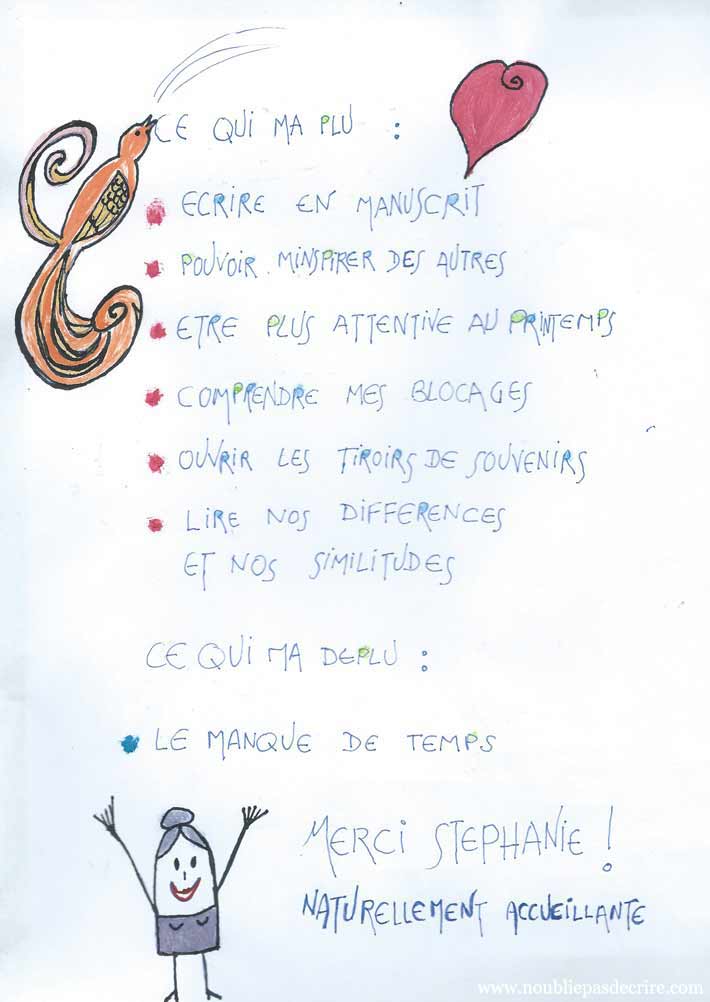 CE QUI MA PLU :
ECRIRE EN MANUSCRIT
POUVOIR MINSPIRER DES AUTRES
ETRE PLUS ATTENTIVE AU PRINTEMPS
COMPRENDRE MES BLOCAGES
OUVRIR LES TIROIRS DE SOUVENIRS
LIRE NOS DIFFERENCES
ET NOS SIMILITUDES
CE QUI MA DEPLU :
LE MANQUE DE TEMPS
MERCI STEPHANIE !
NATURELLEMENT ACCUEILLANTE
www.noubliepasdecrire.com